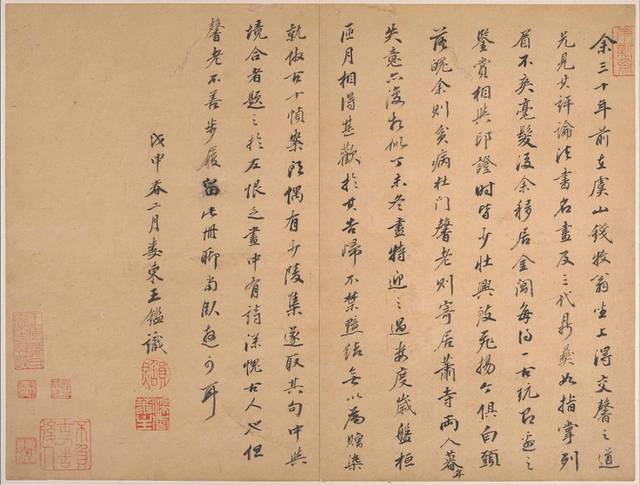 余三十年前在虞山錢牧翁坐上得交馨之道
兄見其評論法書名畫及三代鼎彝如指掌列
眉不爽毫髮後余移居金閶每得一古玩召過之
鑒賞相與印證時皆少壯興致飛揚今俱白頭
落魄余則貧病杜門馨老則寄居蕭寺兩人暮年
失意亦復相似丁未冬盡特迎之過婁度歲盤桓
匝月相得甚歡於其告歸不禁黯結無以爲贈染
就倣古十幀案頭偶有少陵集遂取其句中與
境合者題之於左恨乏畫中有詩深愧古人也但
馨老不善步履留此册聊當臥遊可耳
戊申春二月婁東王鑑識